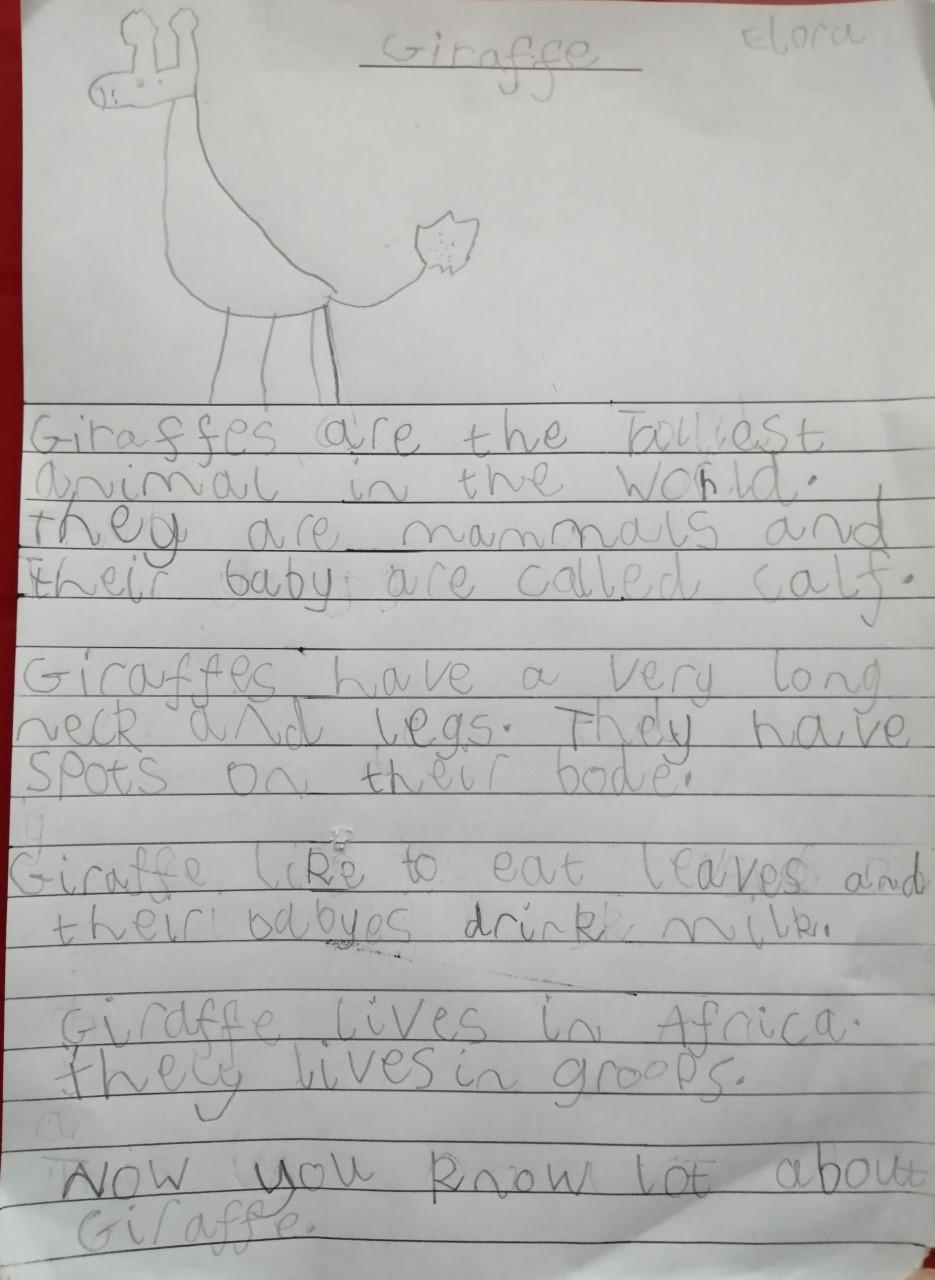 Giraffe
Elora
Giraffes are the Tallest
animal in the World.
they are mammals and
their baby are called calf.
Giraffes have a very long
neck and legs. They have
spots on their bode.
Giraffe like to eat leaves and
their babyes drink milk.
Giraffe lives in Africa.
they lives in groops.
Now you know lot about
Giraffe.